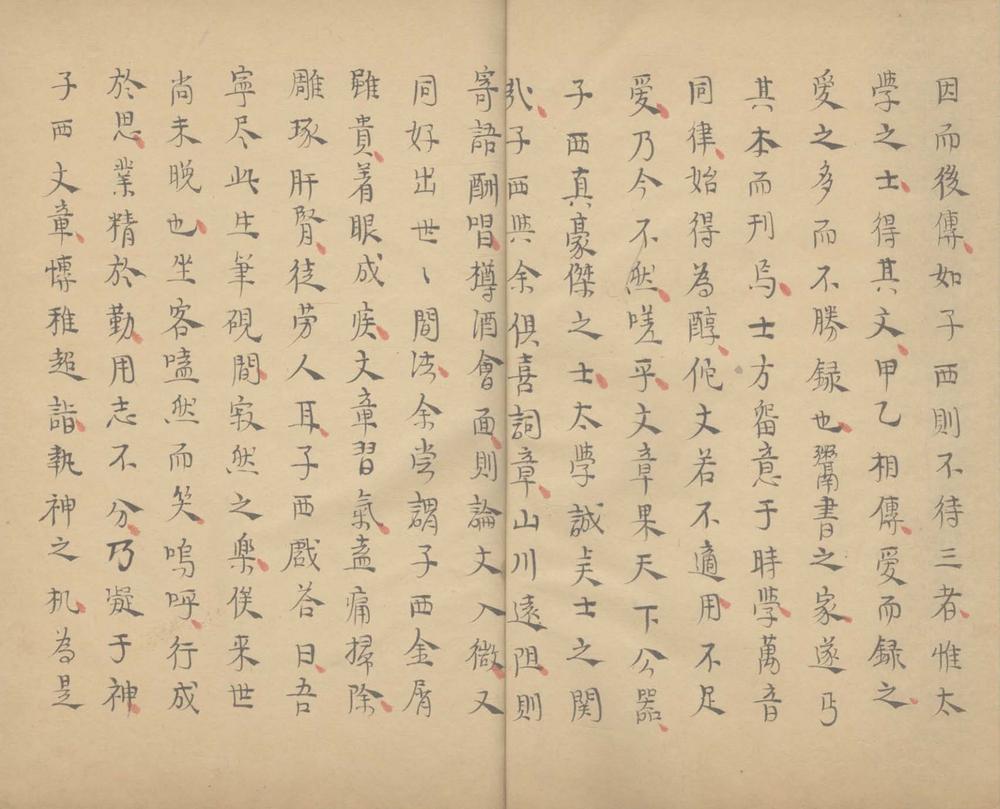 因而後傳如子西則不待三者惟太
學之士得其文甲乙相傳愛而録之
愛之多而不勝録也鬻書之家遂丐
其本而刊焉士方留意于時學萬音
同律始得為醇佗文若不適用不足
愛乃今不然嗟乎文章果天下公器
子西真豪傑之士太學誠矣士之関
哉子西與余俱喜詞章山川遠阻則
寄語酬唱樽酒會面則論文入微又
同好出世〻間法余嘗謂子西金屑
雖貴着眼成疾文章習氣盍痛掃除
雕琢肝腎徒劳人耳子西戲荅曰吾
寧尽此生筆硯間寂然之樂俟来世
尚未晚也坐客嗑然而笑嗚呼行成
於思業精於勤用志不分乃凝于神
子西文章慱雅超詣執神之机為是